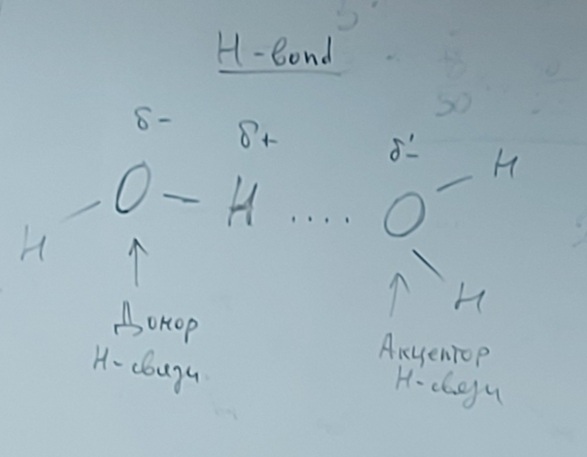 H-bond
δ- δ+ δ'-
H - O - H .... O - H
H
Донор
H-связи
Акцептор
H-связи